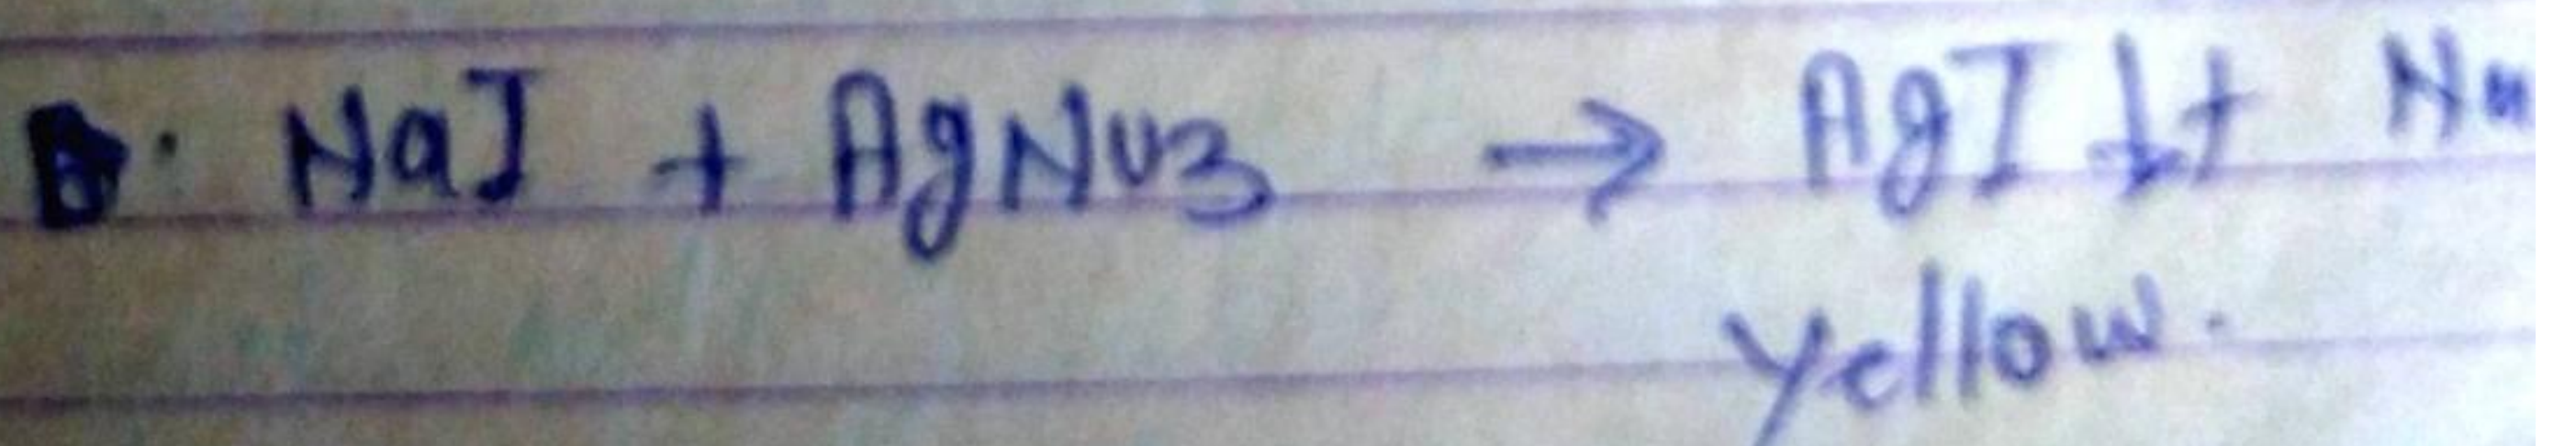 B. NaI + AgNO3 → AgI ↓ + Na
Yellow.